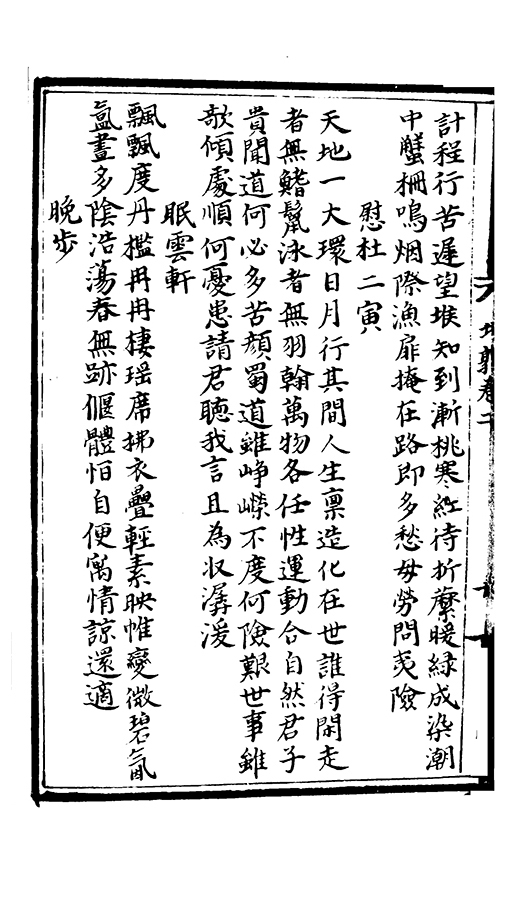 計程行苦遲望堠知到漸桃寒紅待折蘩暖緑成染潮
中蟹柵鳴烟際漁扉掩在路即多愁毋勞問夷險
慰杜二寅
天地一大環日月行其間人生禀造化在世誰得閑走
者無鰭鬛泳者無羽翰萬物各任性運動合自然君子
貴聞道何必多苦顔蜀道雖峥嶸不度何險艱世事雖
欹傾處順何憂患請君聽我言且為収潺湲
眠雲軒
飄飄度丹檻冉冉棲瑶席拂衣疊輕素映帷變微碧氤
氲晝多陰浩蕩春無跡偃體怕自便寓情諒還適
晚步